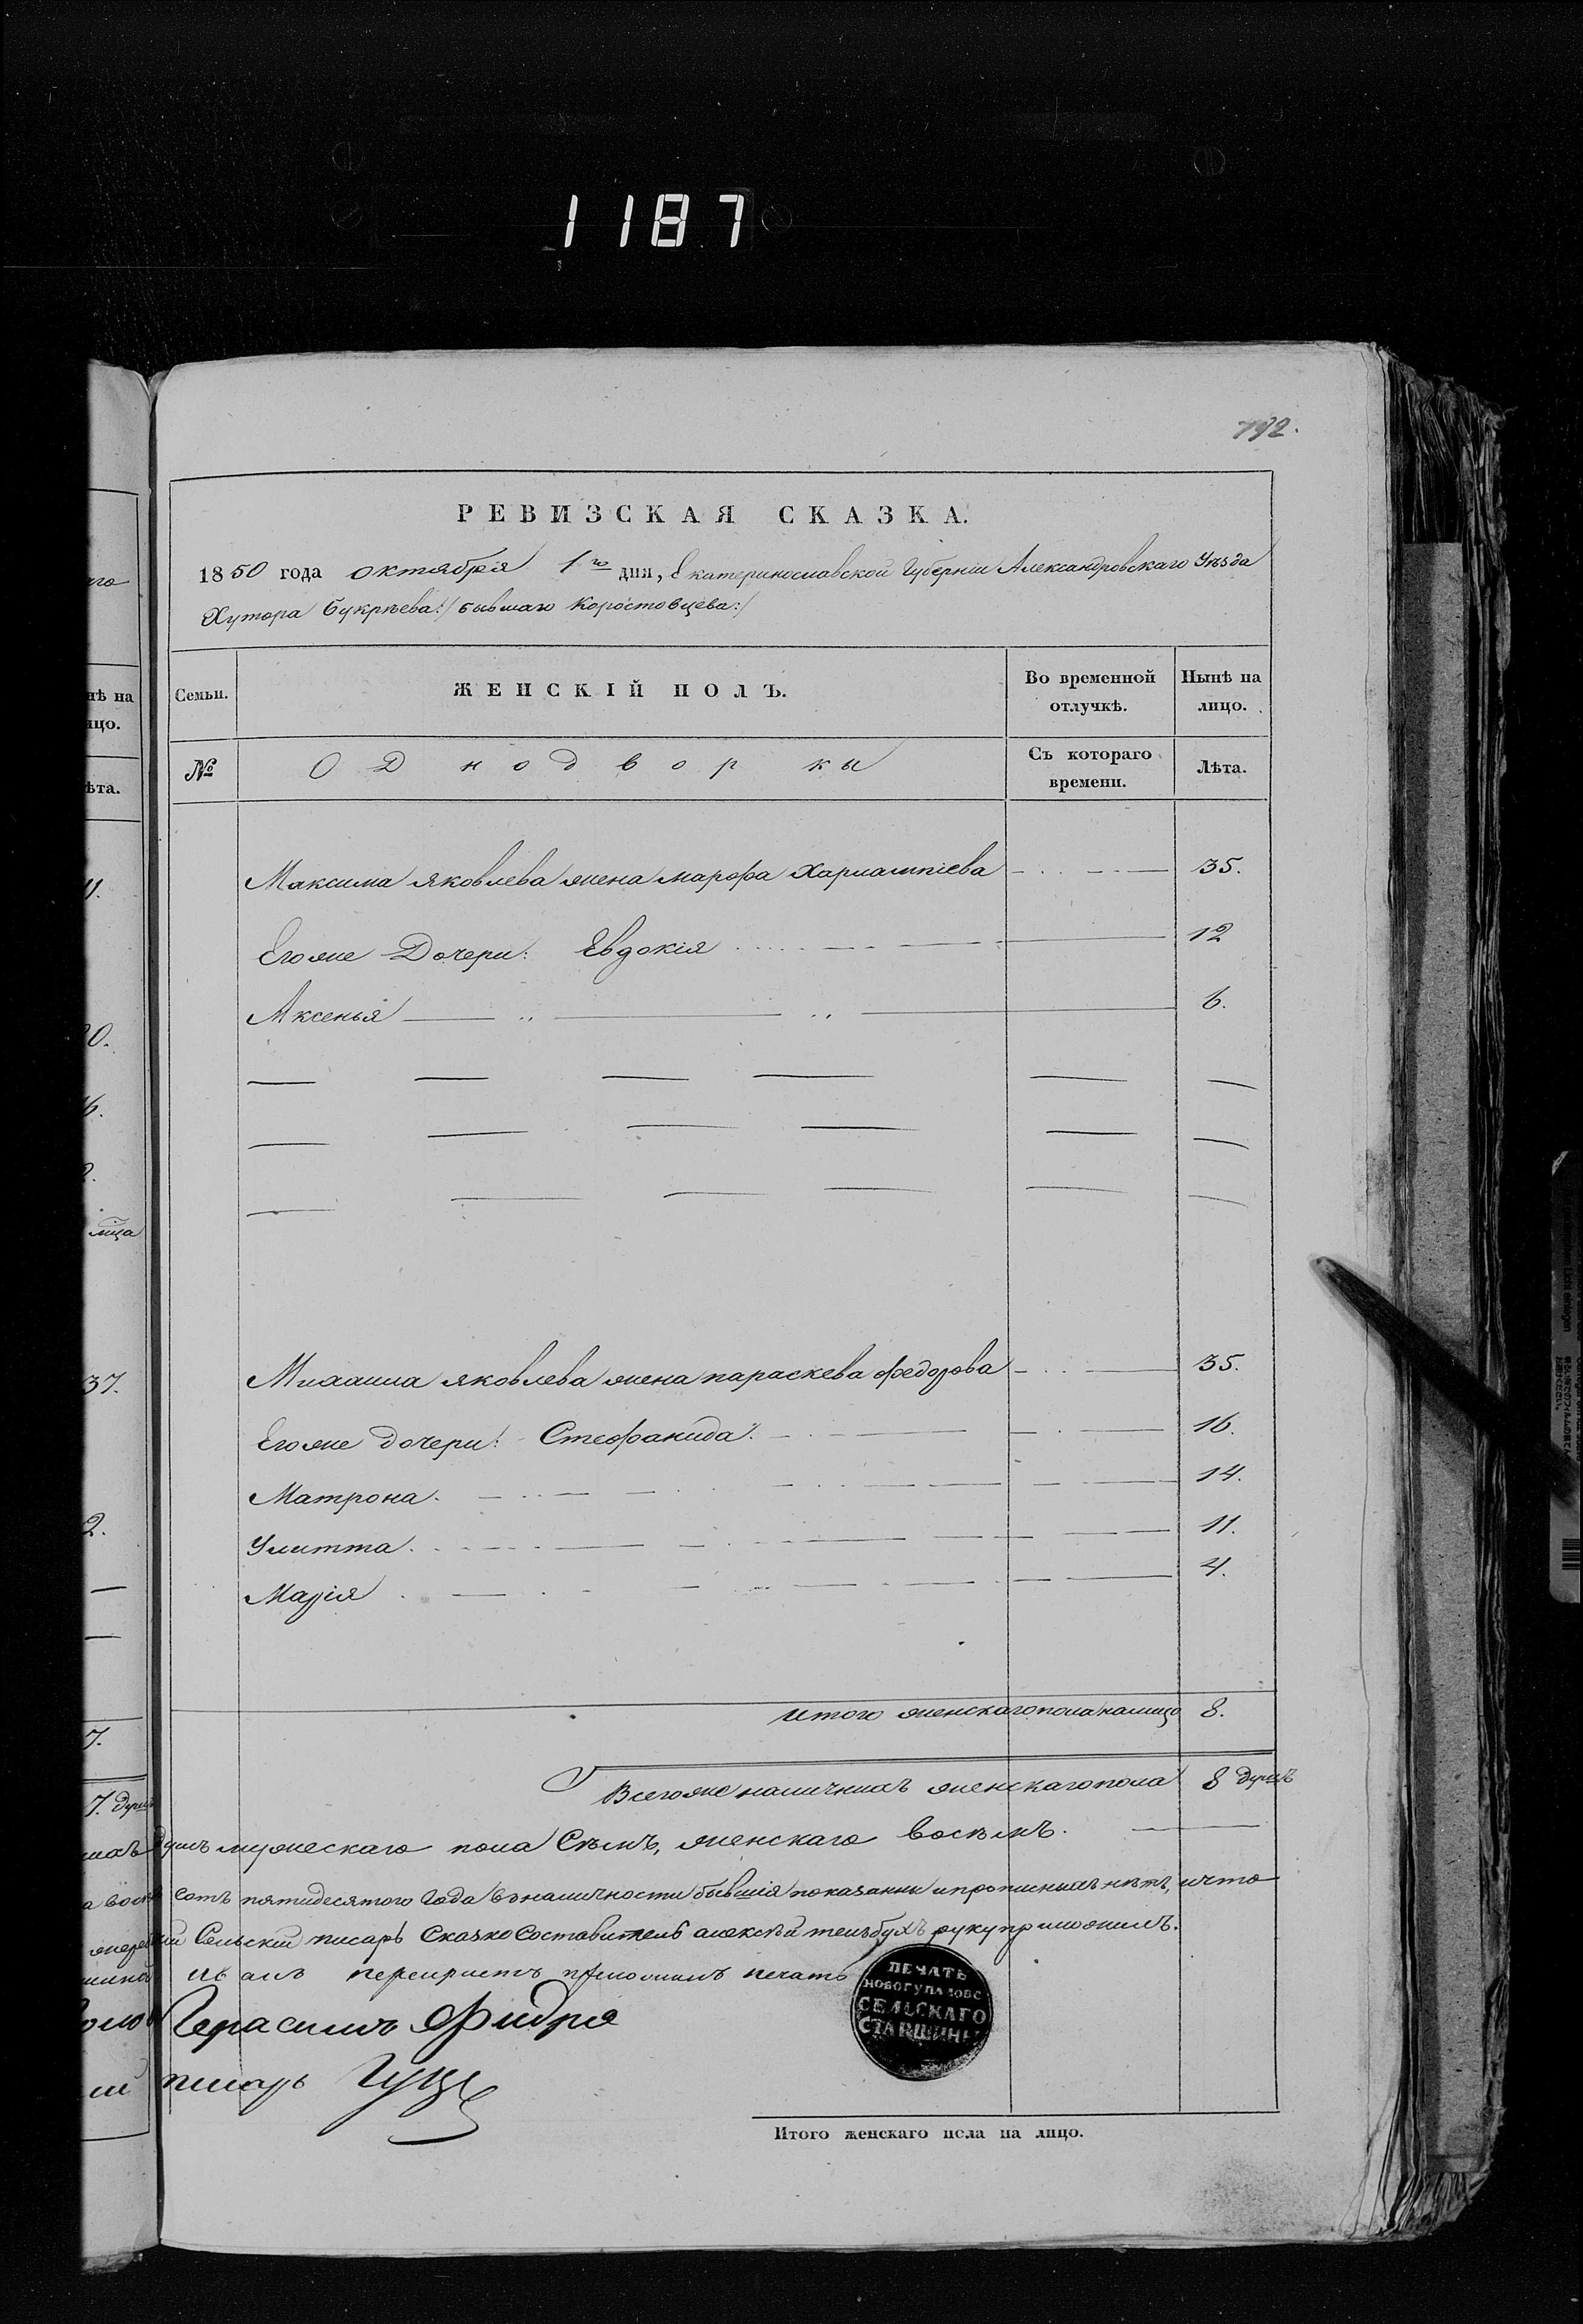 1187
792.
РЕВИЗСКАЯ СКАЗКА.
1850 года октября 1го дня, Екатеринославской Губерніи Александровскаго Уѣзда
Хутора Букрѣева :/ бывшаго Коростовцева :/
нѣ на
ицо.
Семьи.
ЖЕНСКІЙ ПОЛЪ.
Во временной
отлучкѣ.
Нынѣ на
лицо.
ѣта.
№
Однодворки
Съ котораго
времени.
Лѣта.
Максима яковлева жена марфа Харлампіева 35.
Егоже Дочери: Евдокія 12
Аксенья 6.
Михаила яковлева жена параскева федорова 35.
37.
Егоже дочери: Стефанида. 16.
Матрона. 14.
2.
Улитта. 11.
Марія 4.
итого женскагопола налицо 8.
7.
Всегоже наличныхъ женскагопола 8 душъ
7. душъ
душъ мужескаго пола Сѣмъ, женскаго восѣмъ.
сотъ пятидесятого Года вналичности бывшія показанны ипрописныхъ нѣтъ, ичто
Сельскій писарь Сказко Составитель алексѣй рукуприложилъ.
печать
Герасимъ Фидря
писарь
ПЕЧАТЬ
НОВОГУПАЛОВС
СЕЛЬСКАГО
СТАРШИНЫ
Итого женскаго пола на лицо.